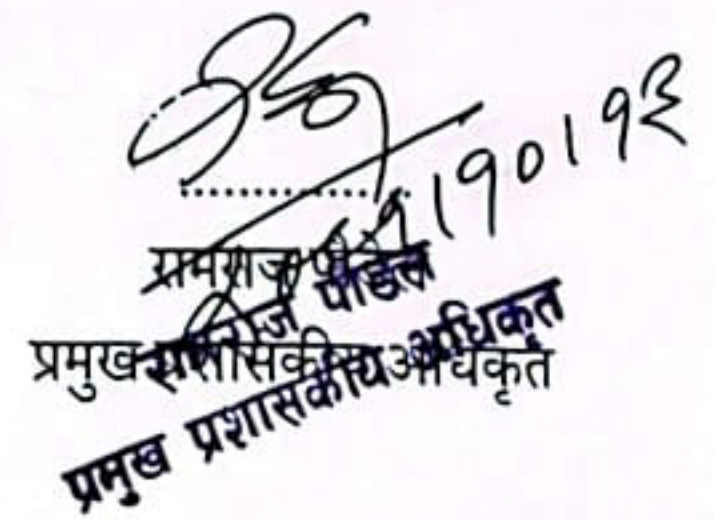 १०।१३
रामराज पौडेल
प्रमुख प्रशासकीय अधिकृत
रामराज पौडेल
प्रमुख प्रशासकीय अधिकृत